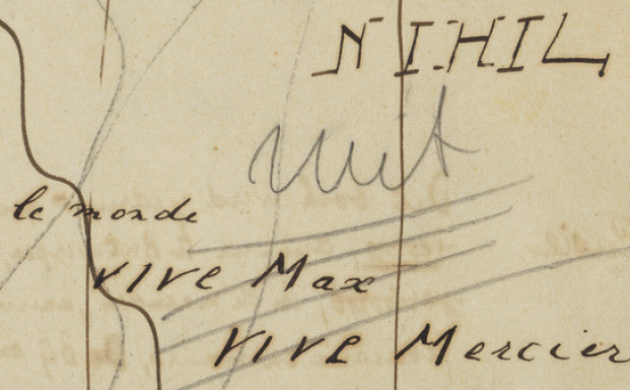 NIHIL
nuit
le monde
VIVE Max
VIVE Mercier